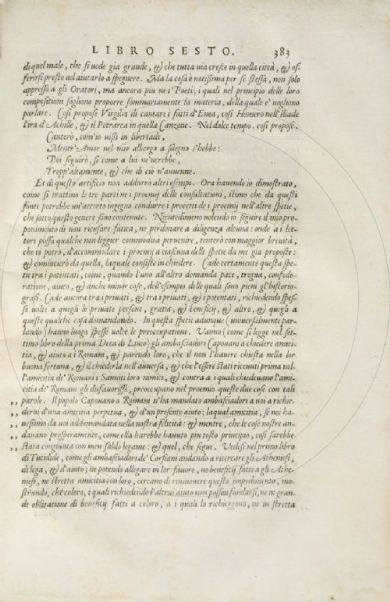 LIBRO SESTO. 383
di quel male, che si vede gia grande, & che tutta via cresce in quella città, & of-
ferirsi presto ad aiutarlo a spegnere. Ma la cosa è notissima per se stessa, non solo
appresso a gli Oratori, ma ancora piu ne i Poeti; i quali nel principio delle loro
compositioni sogliono proporre sommariamente la materia, della quale e' vogliono
parlare. Cosi propose Virgilio di cantare i fatti d'Enea, cosi Homero nell'Iliade
l'ira d'Achille, & il Petrarca in quella Canzone. Nel dolce tempo, cosi propose.
Canterò, com'io vissi in libertade,
Mentr'Amor nel mio albergo a sdegno s'hebbe:
Poi seguirò, si come a lui n'increbbe,
Tropp'altamente, & che di ciò n'avvenne.
Et di questo artificio non addurrò altri esempi. Ora havendo io dimostrato,
come si trattino le tre parti ne i proemij delle consultationi, stimo che da questi
fonti potrebbe un'accorto ingegno condurre i precetti de i proemij nell'altre spetie,
che sotto questo genere sono contenute. Nientedimeno volendo io seguire il mio pro-
ponimento di non ricusare fatica, ne perdonare a diligenza alcuna: onde a i let-
tori possa qualche non leggier commodità pervenire, tenterò con maggior brevità,
che io potrò, d'accommodare i proemij a ciascuna delle spetie da me gia proposte:
& comincierò da quella, laquale consiste in chiedere. Cade certamente questa spe-
tie tra i potentati, come, quando l'uno all'altro domanda pace, tregua, confede-
ratione, aiuto, & anche minor cose, dell'esempio delle quali sono pieni gl'historio-
grafi. Cade ancora tra i privati, & tra i privati, e i potentati, richiedendo spes-
se volte a quegli le private persone, gratia, & beneficij, & altro, & questi a
queste qualche cosa dimandando. In questa spetie adunque (universalmente par-
lando) hanno luogo spesse volte le preoccupationi. Vanno (come si legge nel set-
timo libro della prima Deca di Livio) gli ambasciadori Capovani a chiedere amici-
tia, & aiuto a i Romani, & parendo loro, che il non l'havere chiesta nella lor
buona fortuna, & il chiederla nell'avversa, & che l'essere stati ricevuti prima nel-
l'amicitia de' Romani i Sanniti loro nimici, & contra a i quali chiedevano l'ami-
citia de' Romani gli disfavorisse, preoccupano nel proemio queste due cose con tali
parole. Il popolo Capovano o Romani n'ha mandato ambasciadori a voi a richie-
dervi d'una amicitia perpetua, & d'un presente aiuto: laqual amicitia, se noi ha-
vessimo da voi addomandata nella nostra felicità: & mentre, che le cose nostre an-
davano prosperamente, come ella sarebbe havuto piu testo principio, cosi sarebbe
stata congiunta con men saldo legame: & quel, che segue. Vedesi nel primo libro
di Tucidide, come gli ambasciadori de' Corfiani andando a ricercare gli Atheniesi,
di lega, & d'aiuto; ne potendo allegare in lor favore, ne beneficij fatti a gli Athe-
niesi, ne stretta amicitia con loro, cercano di rimuovere questo impedimento, mo-
strando, che coloro, i quali richiedendo l'altrui aiuto non possono fondarsi, ne in gran-
de obligatione di beneficij fatti a coloro, a i quali lo richieggono, ne in stretta